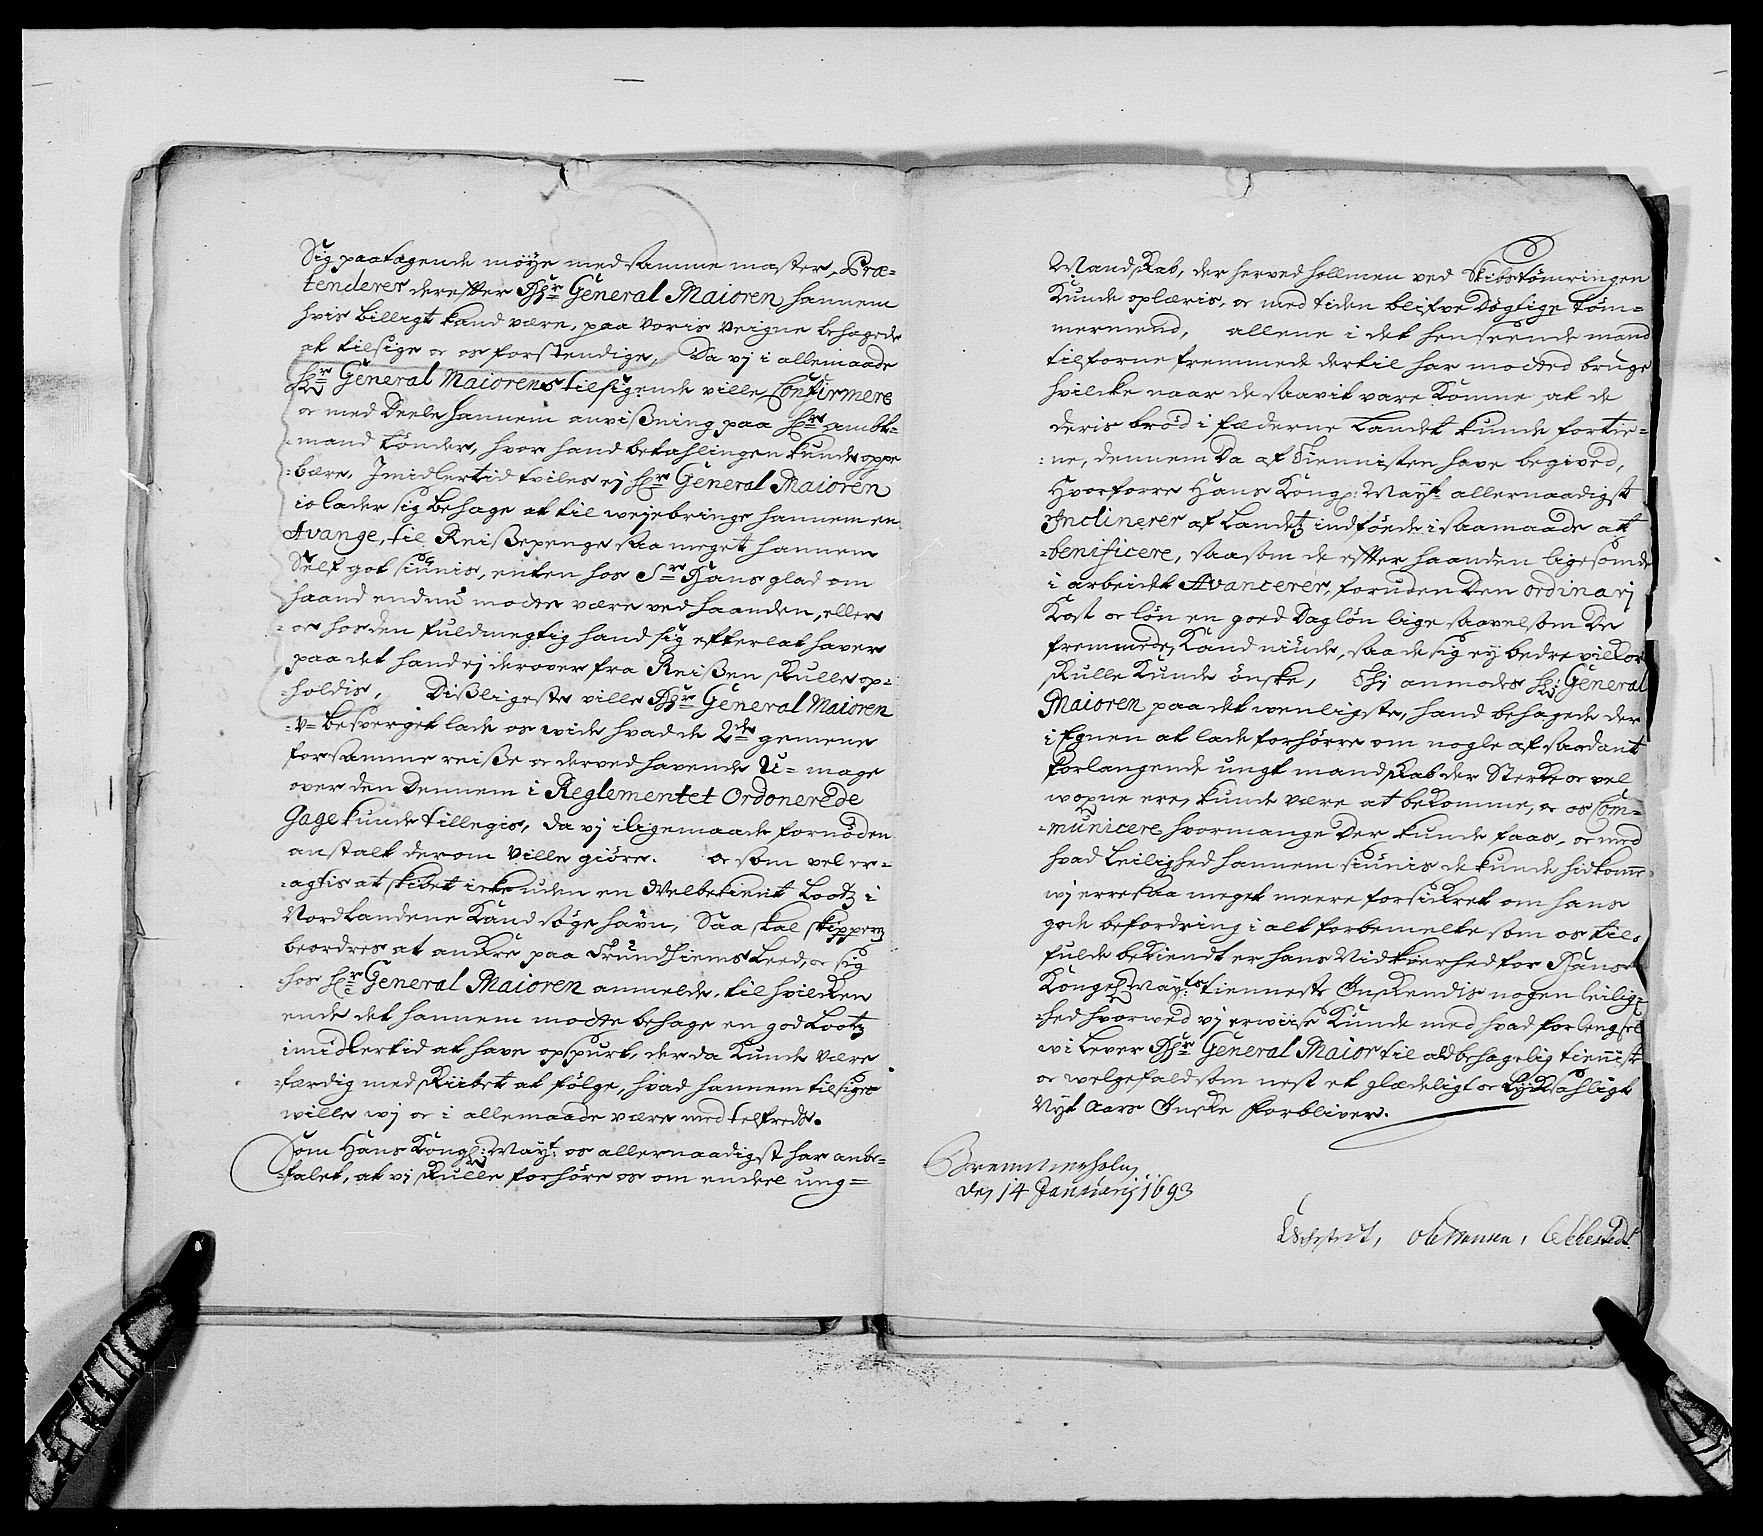 Sig paatagende møye med samme master, Præ-
tenderer derefter Hr: General Maioren hannem
hvis billigt kand være, paa voris veigne behagede
at tilsige oc os forstendige, Da vj i allemaade
Hr: General Maiorens tilsigende ville Confirmere
oc med Deele hannem anvißning paa Hr: ambt-
mand Tønder, hvor hand betahlingen kunde oppe
-bære. Imidlertid tviles ej Hr: General Maioren
io lader sig behage at til wejebringe hannem en
Avange, til Reißepenge saa meget hannem
Self got siunis, enten hos Sr: Hans glad om
haand endnu motte være ved haanden, eller
oc hos den fuldmegtig hand sig efterlat haver
paa det hand ej derover fra Reißen skulle op-
-holdis, Dißligeste ville Hr: General Maioren
u-besverget lade os wide hvad de 2de gemene
for samme reiße oc derved havende U-mage
over den Dennem i Reglementet Ordonerede
Gage kunde tillegis, da vj iligemaade fornøden
anstalt derom ville giøre. oc som vel er-
-agtis at skibet icke uden en Welbekient Lootz i
Nordlandene kand søge havn, Saa skal skipperen
beordres at ankre paa Trundhiems Leed, oc sig
hos Hr: General Maioren anmelde, til hvilcken
ende det hannem motte behage en god Lootz
imidlertid at have opspurt, der da kunde være
færdig med skibet at følge, hvad hannem tilsiges
wille wj oc i allemaade være med telfreds.
Som Hans Kongl: Mayt: os allernaadigst har anbe-
-falet, at vj skulle forhøre os om endeel ung-
Mandskab, der herved hollmen ved Skibstømringen
kunde oplæris, oc med tiden blifve Døgtige tøm-
mermend, allene i det henseende mand
tilforne fremmede dertil har motted bruge
hvilcke naar de saavit vare komne, at de
deris brød i fæderne Landet kunde fortie-
-ne, dennem da af Tiennisten have begived,
Hvorforre Hans Kongl: Mayt: allernaadigst
Inclinerer af Landetz indføde i saamaade at
-benificere, saasom de efter haanden ligesom de
i arbeidet Avancerer, foruden Den ordinarj
kost oc løn en goed Dagløn lige saavelsom De
fremmede, kand niude, saa de sig ej bedre vilkor
skulle kunde ønske, Thj anmodes Hr: General
Maioren paa det wenligste, hand behagede der
i Egnen at lade forhørre om nogle af saadant
forlangende ungt mandskab der Sterke oc vel
woxne ere, kunde være at bekomme, oc os Com-
-municere hvormange der kunde faas, oc med
hvad Leilighed hannem siunis de kunde hidkomme
wj erre saa meget meere forsickret om hans
gode befordring i alt forbemelte som os til
fulde bekiendt er hans Nidkierhed for Hans
Kongel: Mayts: tienneste Ønskendis nogen leilig-
-hed hvorwed vj erwiise kunde med hvad forlengsel
wi lever Hr: General Maior til all behagelig tienist
oc welgefald som nest et glædeligt oc lycksahligt
Nyt Aars Ønske forbliver.
Bremmerholm
den 14 Januarij 1693